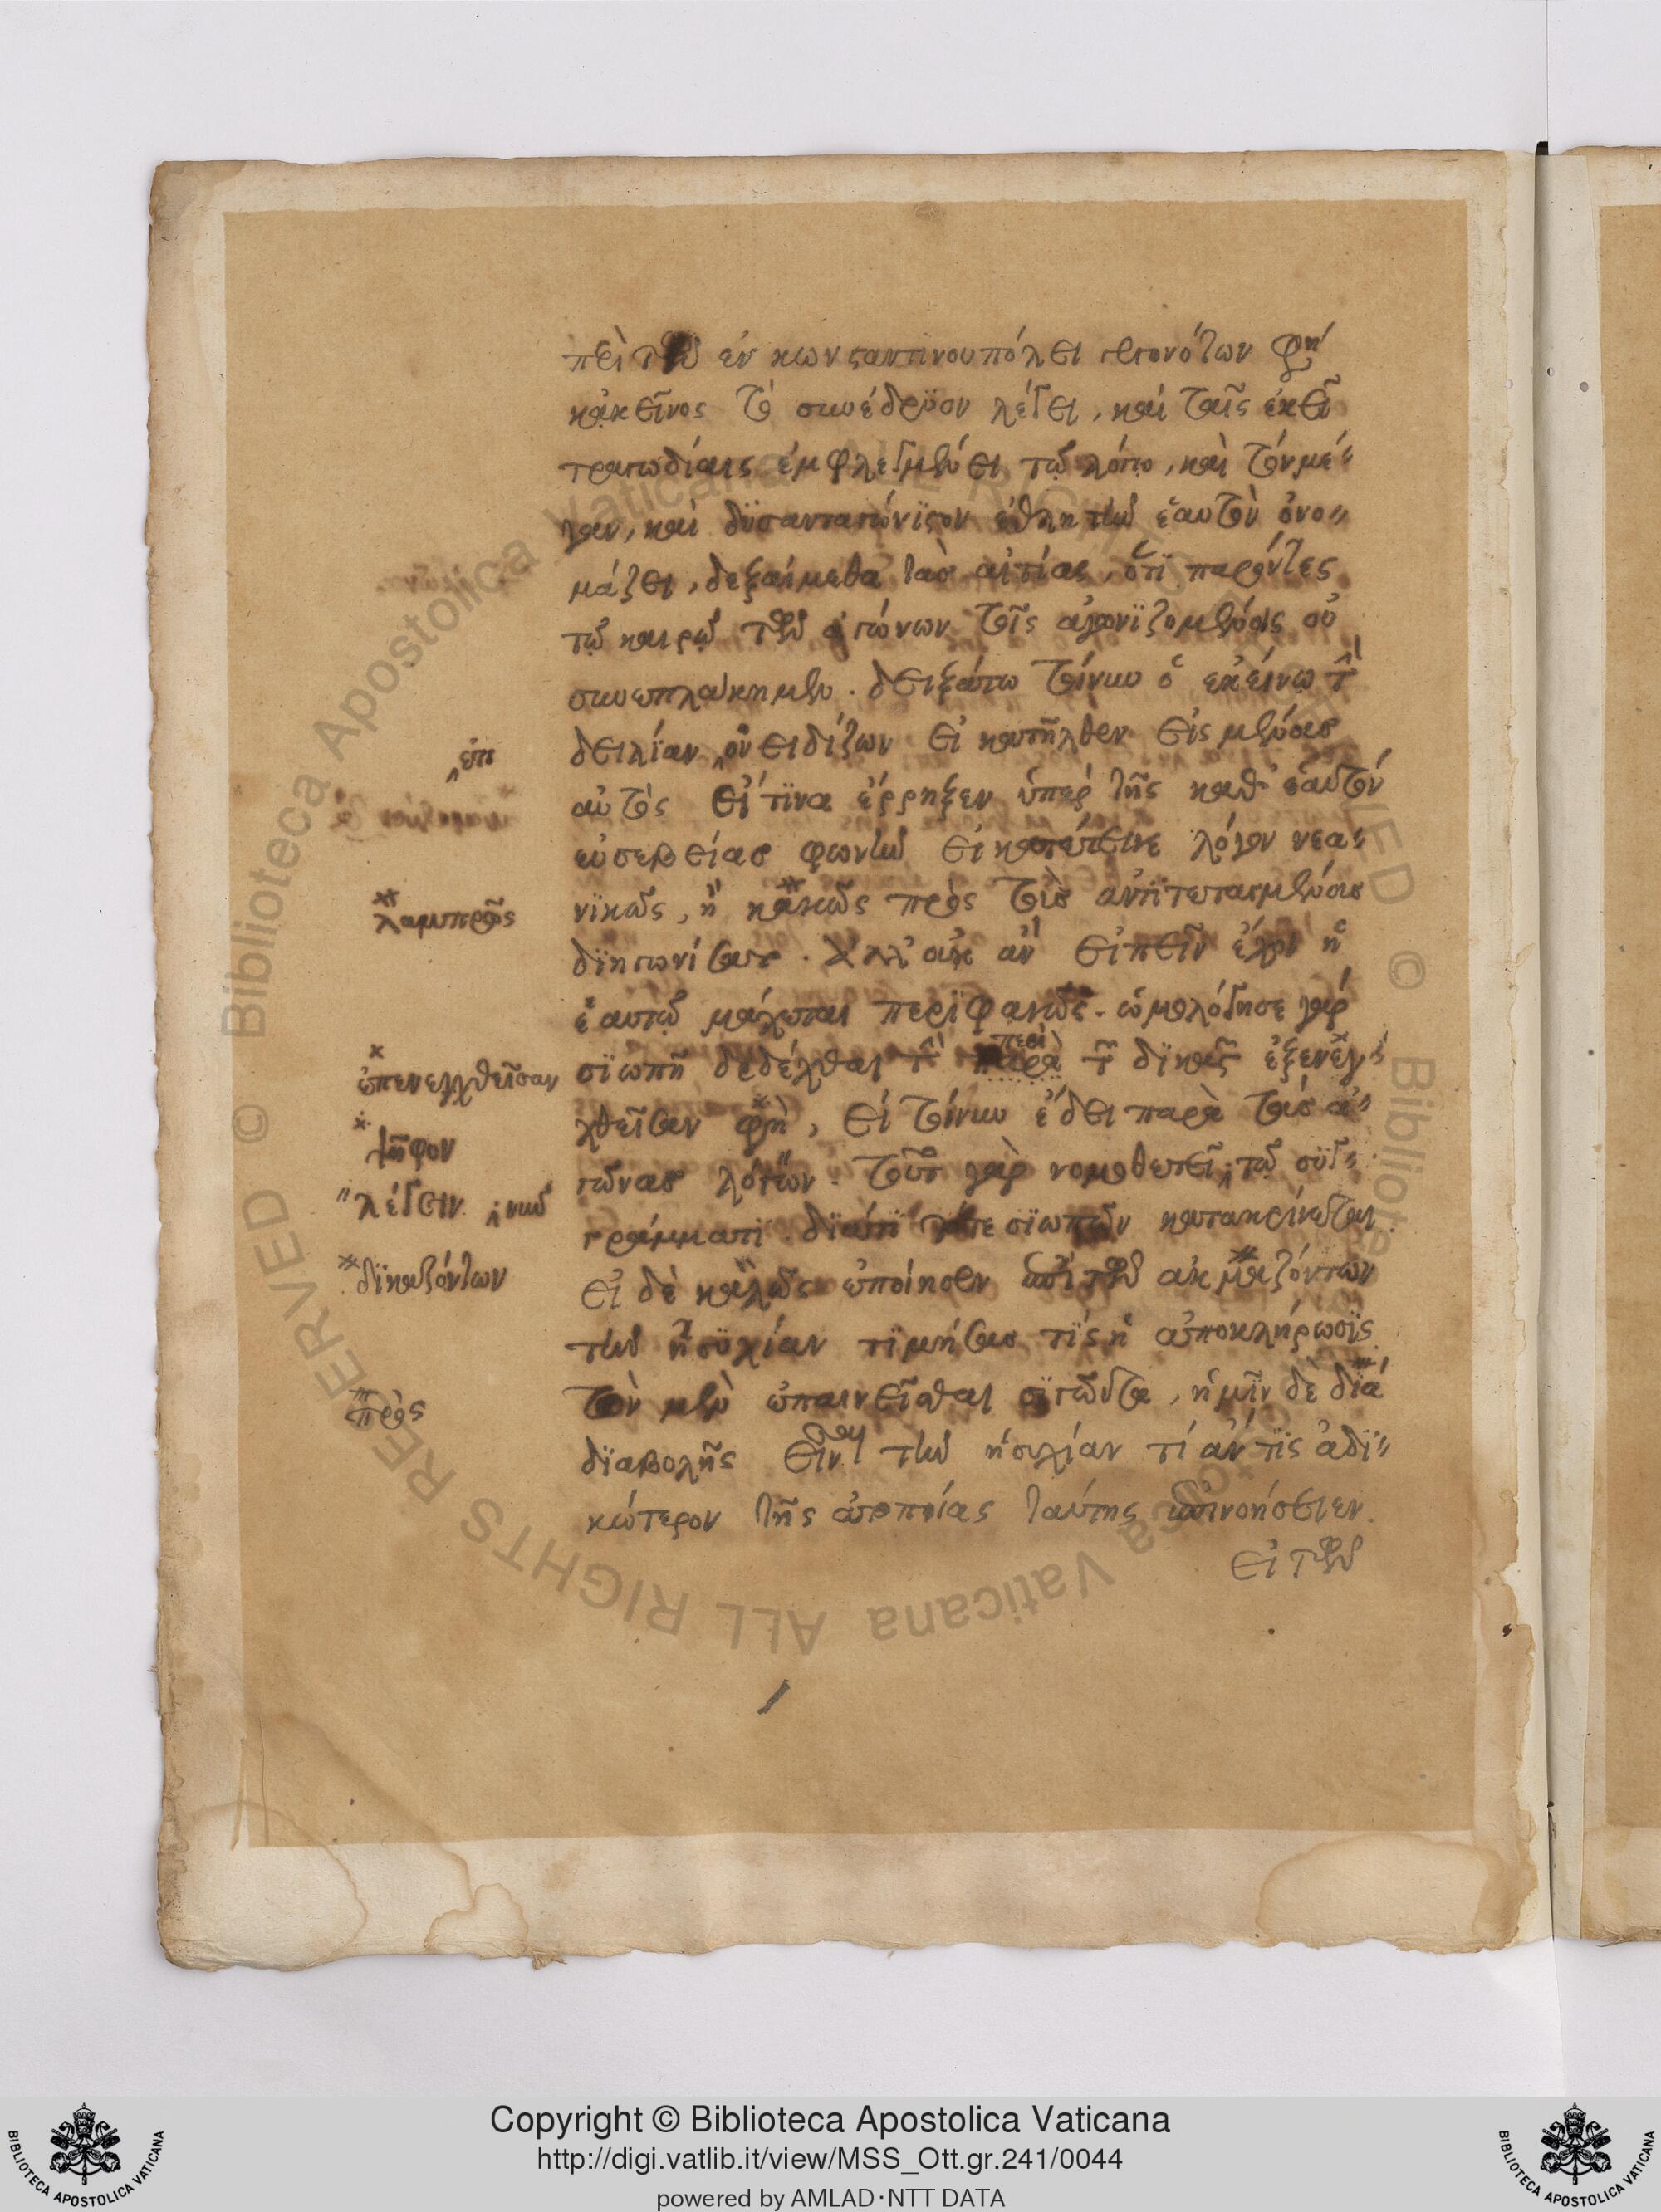 περὶ τῶν ἐν κωνσταντινουπόλει γεγονότων φη
κἀκεῖνος τὸ συνέδριον λέγει, καὶ ταῖς ἐκεῖ
τραγωδίαις ἐμφλεγμαίνει τῷ λόγῳ, καὶ τὸν μέ-
γαν, καὶ δυσανταγώνιστον ἀθλητὴν ἑαυτὸν ὀνο-
μάζει, δεξαίμεθα τὰς αἰτίας, ὅτι παρόντες
τῷ καιρῷ τῶν ἀγώνων τοῖς ἀγωνιζομένοις οὐ
συνεπλάκημεν. δειξάτω τοίνυν ὁ ἐκείνῳ τὴν
δειλίαν ὀνειδίζων εἰ κατῆλθεν εἰς μέσους
αὐτός εἴ τινα ἔρρηξεν ὑπὲρ τῆς καθ' ἑαυτὸν
εὐσεβείας φωνὴν εἰ κατέτεινε λόγον νεα-
νικῶς, ἢ κακῶς πρὸς τοὺς ἀντιτεταγμένους
διηγωνίσατο. ἀλλ' οὐκ ἂν εἰπεῖν ἔχοι ἢ
ἑαυτῷ μάχεται περιφανῶς. ὡμολόγησε γὰρ
σιωπῇ δεδέχθαι τὴν παρὰ περὶ τῆς δίκης ἐξενεγ-
χθεῖσαν φη, εἰ τοίνυν ἔδει παρὰ τοὺς ἀ-
γῶνας λόγων. τοῦτο γὰρ νομοθετεῖ τῷ συγ-
γράμματι. διατί τότε σιωπῶν κατακρίνεται
εἰ δὲ καλῶς ἐποίησεν ἐπὶ τῶν ἀκμαζόντων
τὴν ἡσυχίαν τιμήσας τίς ἡ ἀποκλήρωσις
τὸν μὲν ἐπαινεῖσθαι σιγῶντα, ἡμῖν δὲ διὰ
διαβολῆς εἶναι τὴν ἡσυχίαν τί ἄν τις ἀδι-
κώτερον τῆς ἀτοπίας ταύτης ἐπινοήσειεν.
εἰ τῶν
λαμπρῶς
ἐπενεχθεῖσαν
ψῆφον
λέγειν. νῦν
δικαζόντων
πρὸς
Copyright © Biblioteca Apostolica Vaticana
http://digi.vatlib.it/view/MSS_Ott.gr.241/0044
powered by AMLAD·NTT DATA
BIBLIOTECA APOSTOLICA VATICANA
BIBLIOTECA APOSTOLICA VATICANA
© Biblioteca Apostolica Vaticana ALL RIGHTS RESERVED